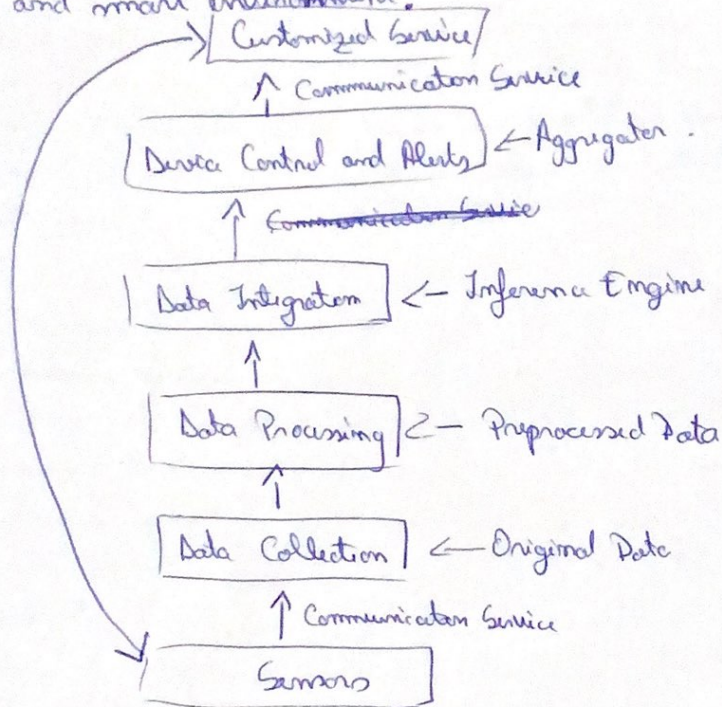 and smart
Customized Service
Communication Service
Device Control and Alerts
Aggregator.
Communication Service
Data Integration
Inference Engine
Data Processing
Preprocessed Data
Data Collection
Original Data
Communication Service
Sensors